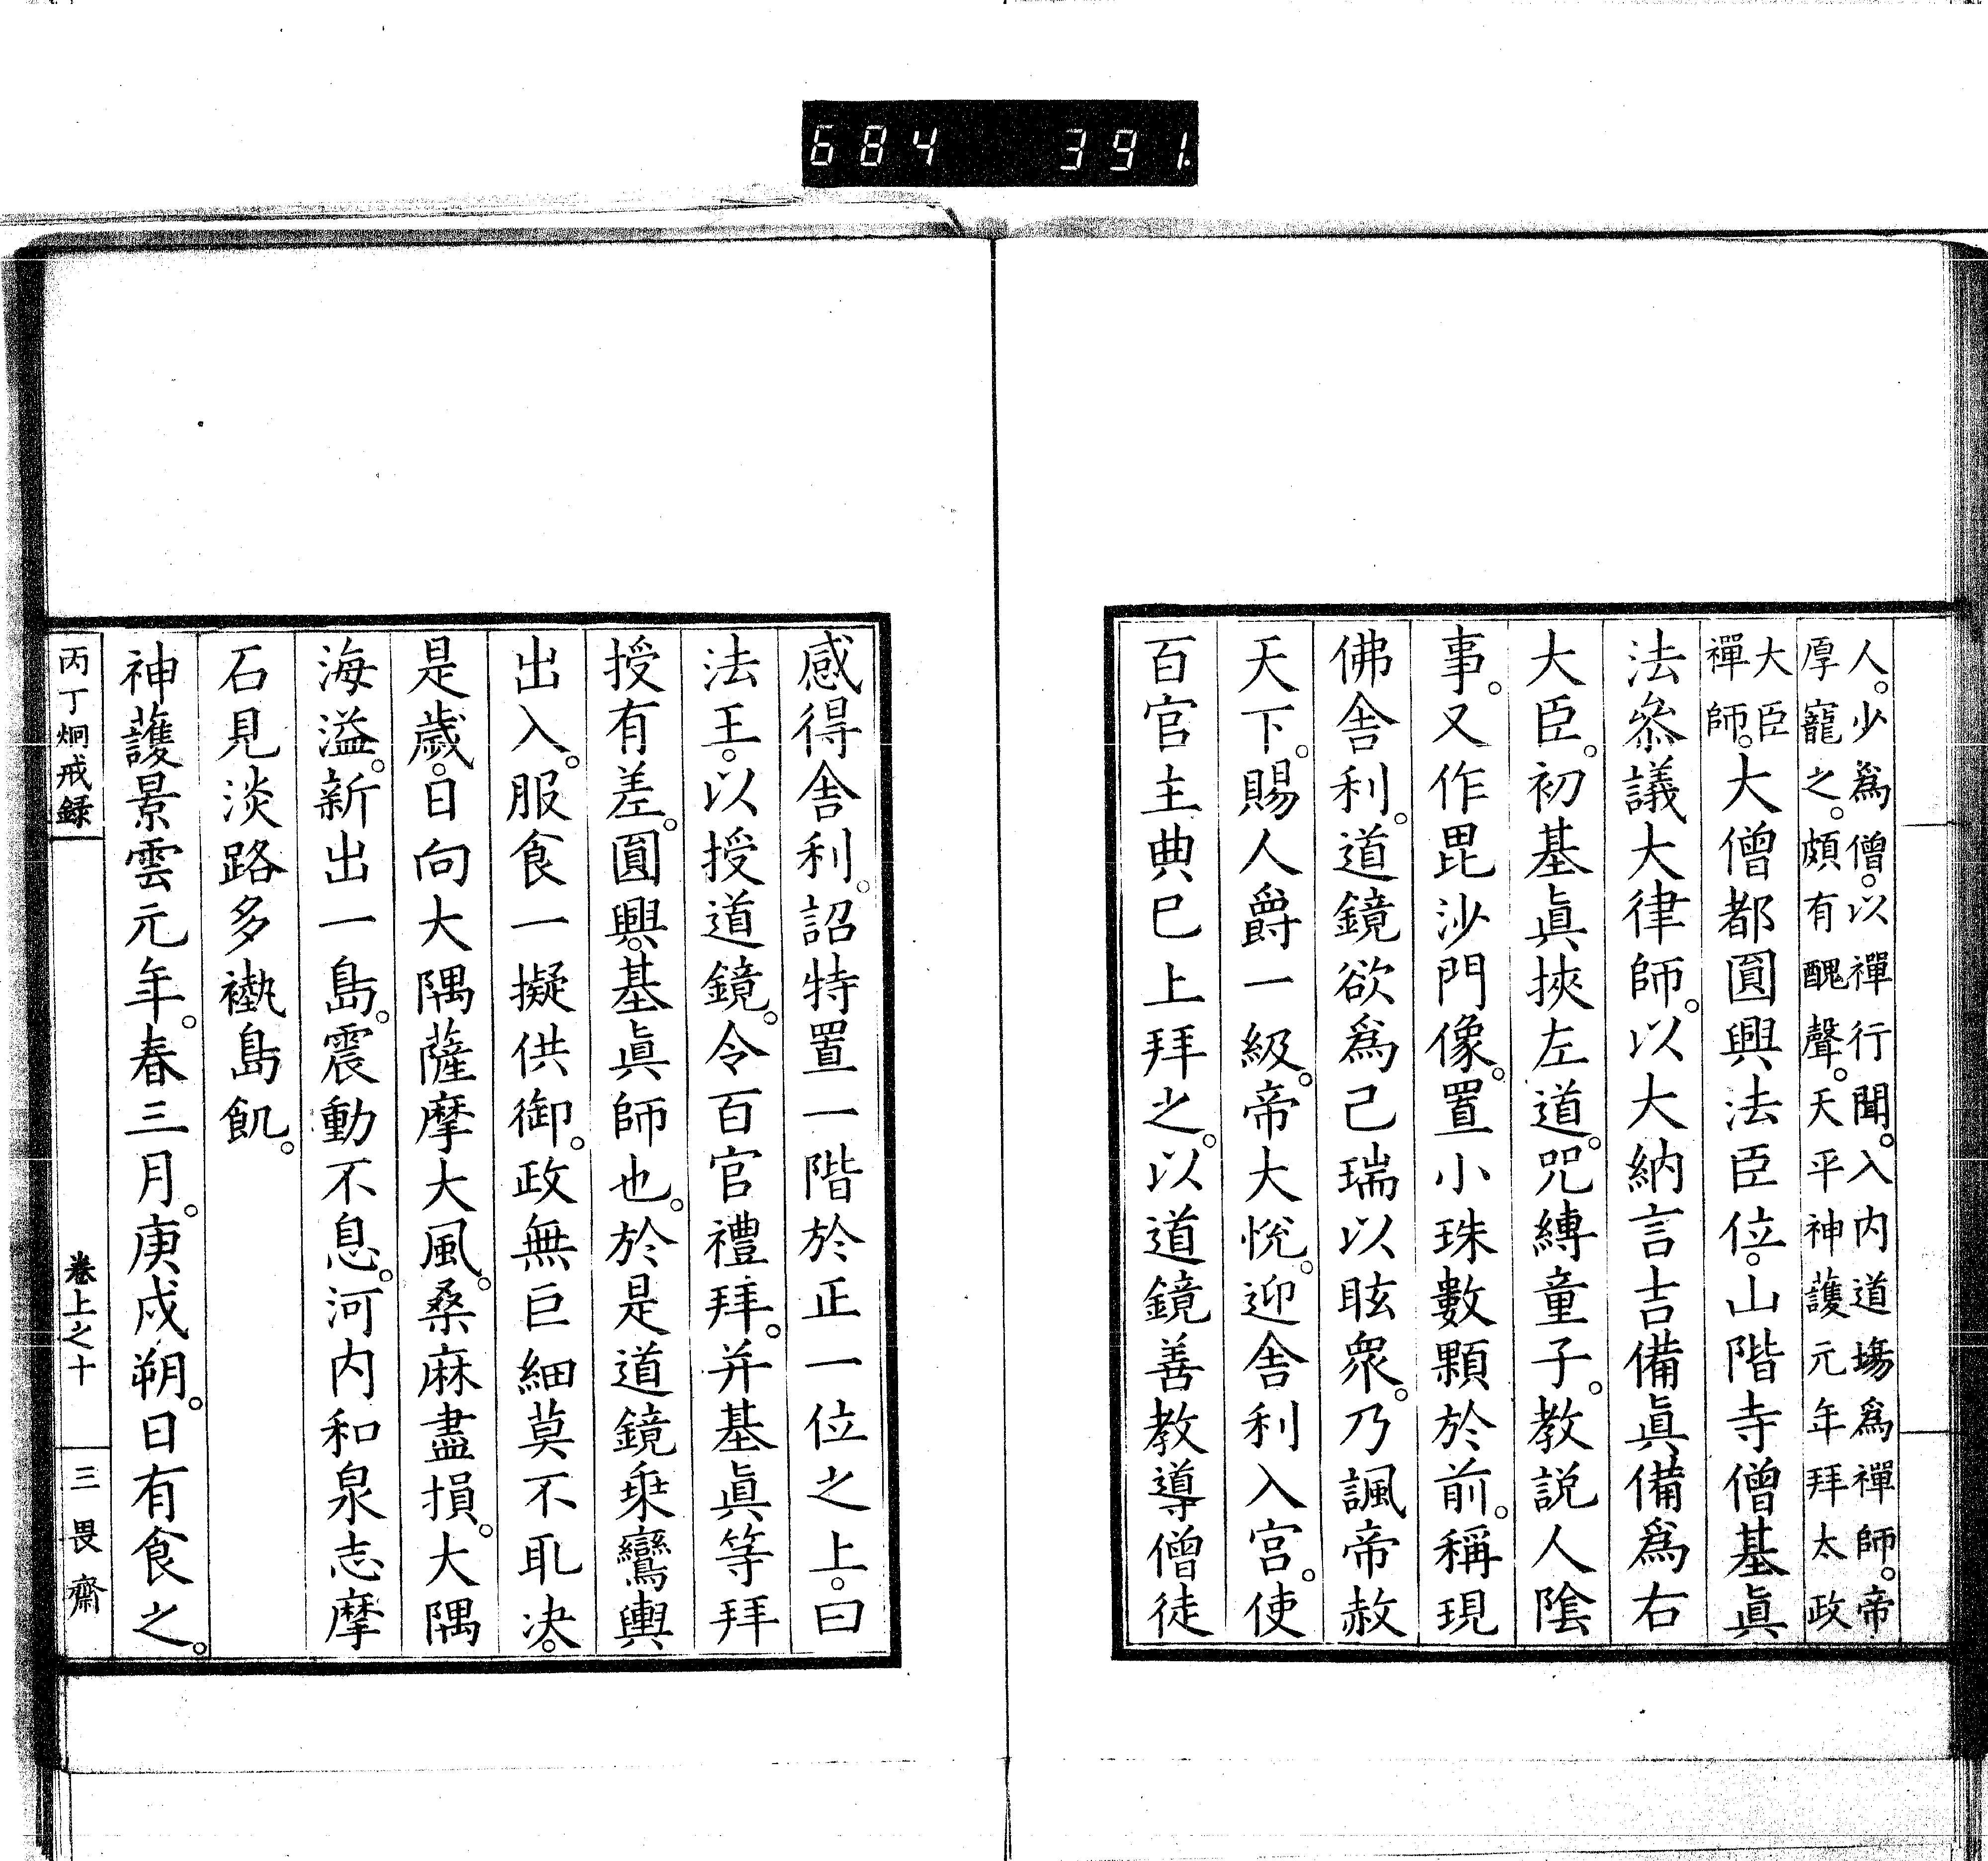 684 391.
人。少爲僧。以禪行聞。入内道場爲禪師。帝
厚寵之。頗有醜聲。天平神護元年拜太政
大臣
禪師。大僧都圓興法臣位。山階寺僧基眞
法叅議大律師。以大納言吉備眞備爲右
大臣。初基眞挾左道。咒縛童子。教説人陰
事。又作毘沙門像。置小珠數顆於前。稱現
佛舎利。道鏡欲爲己瑞以眩衆。乃諷帝赦
天下。賜人爵一級。帝大悅。迎舎利入宮。使
百官主典已上拜之。以道鏡善教導僧徒
感得舎利。詔特置一階於正一位之上。曰
法王。以授道鏡。令百官禮拜。并基眞等拜
授有差。圓興。基眞師也。於是道鏡乘鸞輿
出入。服食一擬供御。政無巨細莫不取决。
是歲。日向大隅薩摩大風。桑麻盡損。大隅
海溢。新出一島。震動不息。河内和泉志摩
石見淡路多褹島飢。
神護景雲元年。春三月。庚戌朔。日有食之。
丙丁烱戒録
卷上之十
三畏齋